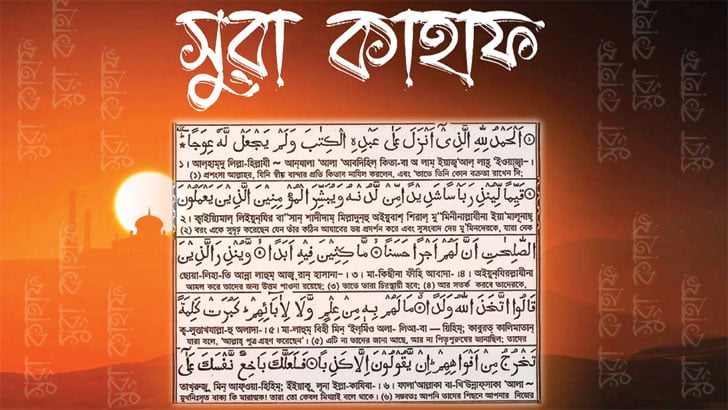 সুরা কাহাফ
اَلْحَمْدُ لِلّٰهِ الَّذِیْۤ اَنْزَلَ عَلٰی عَبْدِهِ الْكِتٰبَ وَلَمْ یَجْعَلْ لَّهٗ عِوَجًا
১। আল্‌হাম্‌দু লিল্লা-হিল্লাযী ~ আন্‌যালা 'আলা 'আবদিহিল্ কিতা-বা অ লাম্ ইয়াজ্'আল্ লাহূ 'ইওয়াজ্বা-।
(১) প্রশংসা আল্লাহর, যিনি স্বীয় বান্দার প্রতি কিতাব নাযিল করলেন, এবং তাতে তিনি কোন বক্রতা রাখেন নি;
قَیِّمًا لِّیُنْذِرَ بَاْسًا شَدِیْدًا مِّنْ لَّدُنْهُ وَیُبَشِّرَ الْمُؤْمِنِیْنَ الَّذِیْنَ یَعْمَلُوْنَ
২। ক্বাইয়্যিমাল্ লিইয়ুন্‌যির বা"সান্ শাদীদাম্ মিল্লাদুন্‌হু অইয়ুবাশ্ শিরাল্ মু"মিনীনাল্লাযীনা ইয়া'মালূনাছ্
(২) বরং একে সুদৃঢ় করেছেন যেন তাঁর কঠিন আযাবের ভয় প্রদর্শন করে এবং সুসংবাদ দেয় মু'মিনদেরকে, যারা নেক
الصّٰلِحٰتِ اَنَّ لَهُمْ اَجْرًا حَسَنًا مَّاكِثِیْنَ فِیْهِ اَبَدًا وَّیُنْذِرَ الَّذِیْنَ
ছোয়া-লিহা-তি আন্না লাহুম্ আজ্ব্‌রান্ হাসানা-। ৩। মা-কিছীনা ফীহি আবাদা-।৪। অইয়ুন্‌যিরল্লাযীনা
আমল করে তাদের জন্য উত্তম পাওনা রয়েছে; (৩) তাতে তারা চিরস্থায়ী হবে; (৪) আর সতর্ক করবে তাদেরকে,
قَالُوا اتَّخَذَ اللّٰهُ وَلَدًا مَا لَهُمْ بِهٖ مِنْ عِلْمٍ وَّلَا لِاٰبَآئِهِمْ كَبُرَتْ كَلِمَةً
ক্ব-লুত্তাখযাল্লা-হু অলাদা-।৫। মা-লাহুম্ বিহী মিন্ 'ইল্‌মিঁও অলা-লিআ-বা — য়িহিম্; কাবুরত্ কালিমাতান্
যারা বলে, 'আল্লাহ্ পুত্র গ্রহণ করেছেন'। (৫) এটি না তাদের জানা আছে, আর না পিতৃপুরুষের জানাছিল; তাদের
تَخْرُجُ مِنْ اَفْوَاهِهِمْ اِنْ یَّقُوْلُوْنَ اِلَّا كَذِبًا فَلَعَلَّكَ بَاخِعٌ نَّفْسَكَ عَلٰۤی
তাখ্‌রুজু মিন্ আফ্ওয়া-হিহিম্; ইঁইয়াকূ লূনা ইল্লা-কাযিবা-। ৬। ফালা'আল্লাকা বা-খি'উন্নাফ্‌সাকা 'আলা~
মুখনিঃসৃত বাক্য কি মারাত্মক! তারা তো কেবল মিথ্যাই বলে থাকে। (৬) সম্ভবতঃ আপনি তাদের পিছনে আপনার নিজের
সুরা কাহাফ
সুরা কাহাফ
সুরা কাহাফ
সুরা কাহাফ